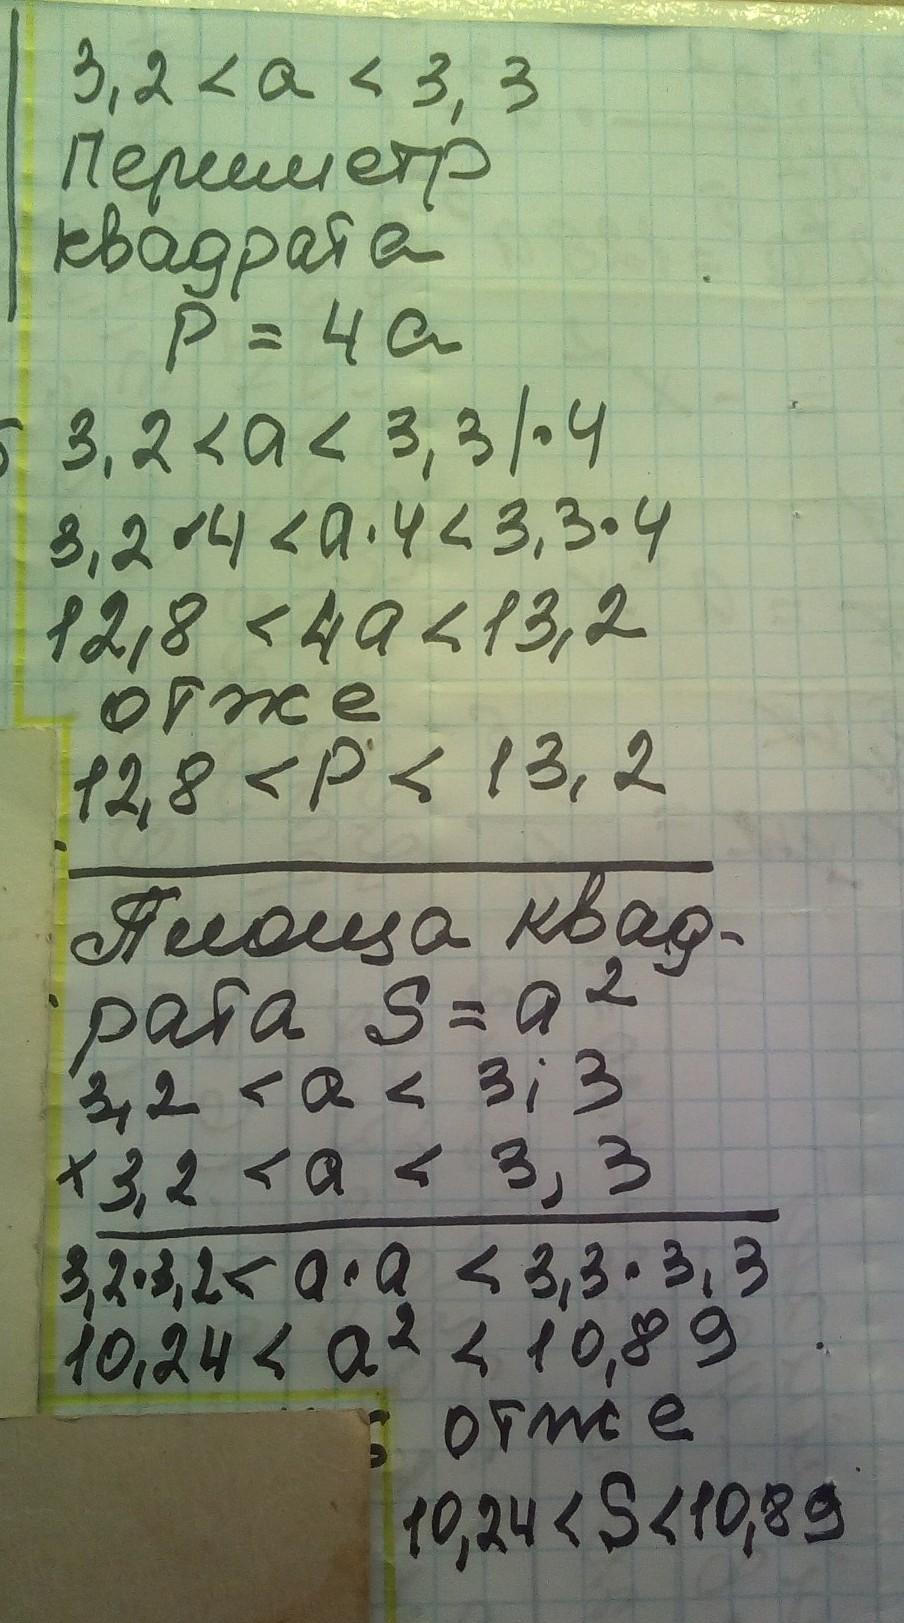 3,2 < a < 3,3
Периметр
квадрата
P = 4a
3,2 < a < 3,3 | · 4
3,2 · 4 < a · 4 < 3,3 · 4
12,8 < 4a < 13,2
отже
12,8 < P < 13,2
Площа квад-
рата S = a²
3,2 < a < 3,3
× 3,2 < a < 3,3
3,2 · 3,2 < a · a < 3,3 · 3,3
10,24 < a² < 10,89
отже
10,24 < S < 10,89